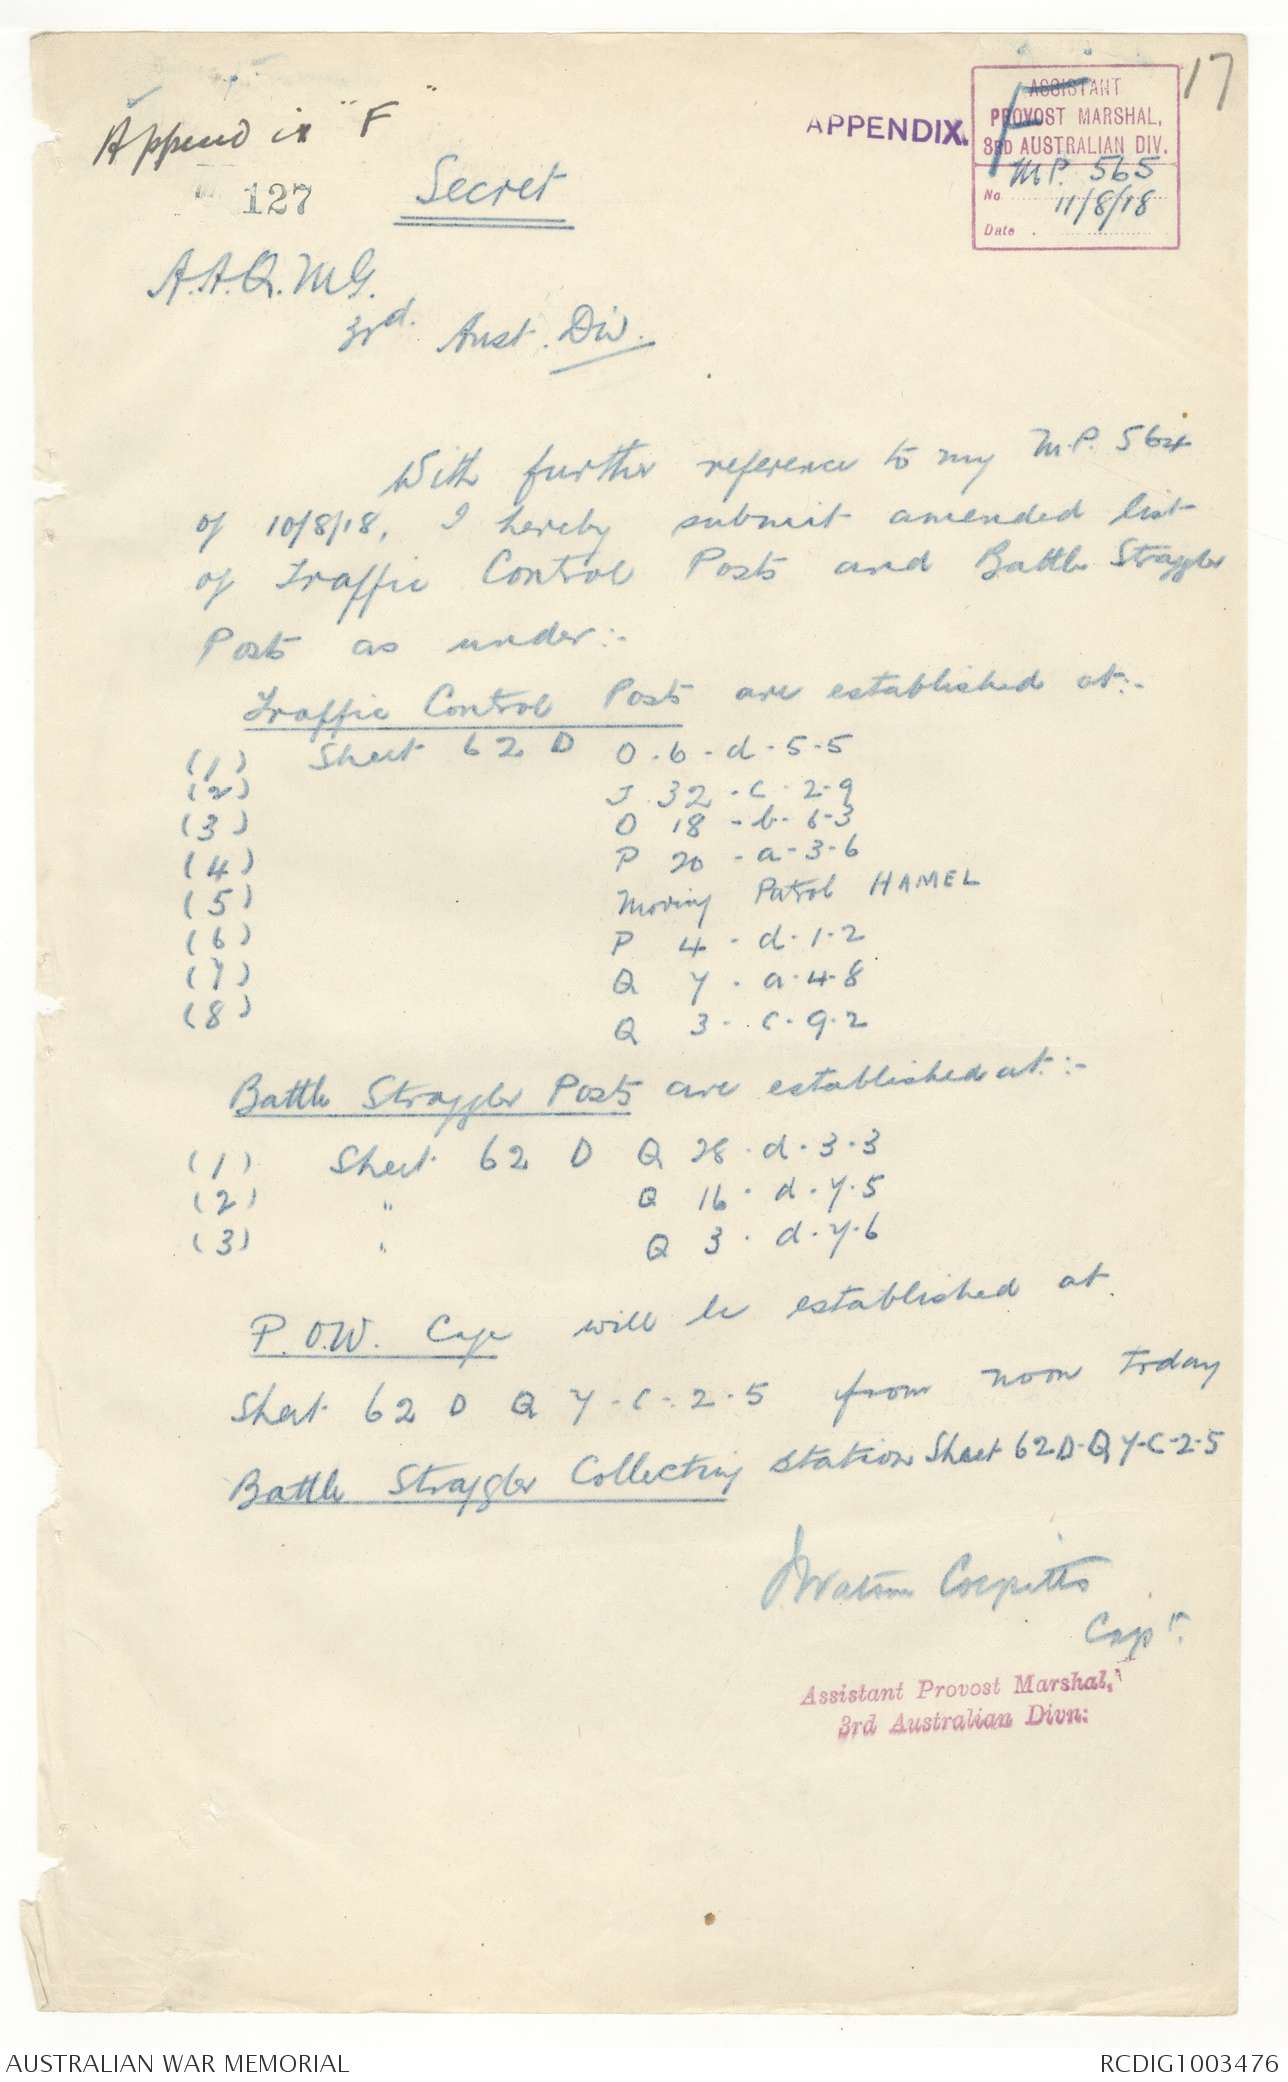 Appendix "F"
127
Secret
APPENDIX. F
17
ASSISTANT
PROVOST MARSHAL,
3RD AUSTRALIAN DIV.
No M.P. 565
Date 11/8/18
A.A.Q.M.G.
3rd. Aust. Div.
With further reference to my M.P. 564
of 10/8/18, I hereby submit amended list
of Traffic Control Posts and Battle Straggler
Posts as under:-
Traffic Control Posts are established at:-
(1) Sheet 62 D O.6.d.5.5
(2) J.32.c.2.9
(3) O 18.b.6.3
(4) P 20.a.3.6
(5) Moving Patrol HAMEL
(6) P 4.d.1.2
(7) Q 7.a.4.8
(8) Q 3.c.9.2
Battle Straggler Posts are established at:-
(1) Sheet 62 D Q 28.d.3.3
(2) " Q 16.d.7.5
(3) " Q 3.d.7.6
P.O.W. Cage will be established at
Sheet 62 D Q 7.c.2.5 from noon today
Battle Straggler Collecting Station Sheet 62D.Q 7.C.2.5
Watson
Capt.
Assistant Provost Marshal,
3rd Australian Divn:
AUSTRALIAN WAR MEMORIAL
RCDIG1003476